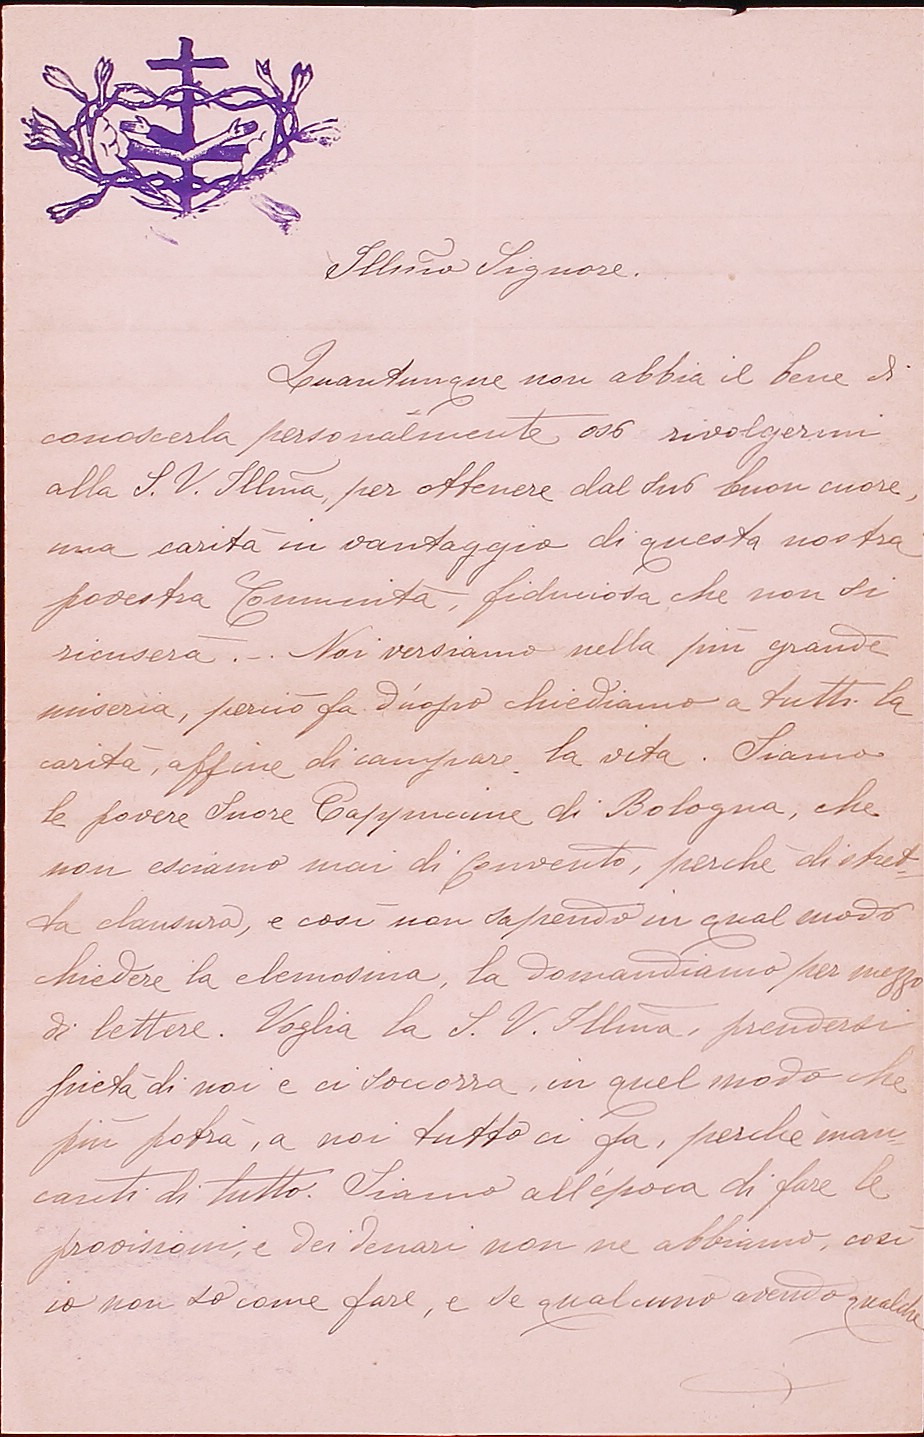 Illmo Signore.
Quantunque non abbia il bene di
conoscerla personalmente, oso rivolgermi
alla S. V. Illma, per ottenere dal suo buon cuore,
una carità in vantaggio di questa nostra
povestra Comunità, fiduciosa che non si
ricuserà. - . Noi versiamo nella più grande
miseria, perciò fa d'uopo chiediamo a tutti la
carità, affine di campare la vita. Siamo
le povere Suore Cappuccine di Bologna, che
non esciamo mai di Convento, perchè di stret-
ta clausura, e così non sapendo in qual modo
chiedere la elemosina, la domandiamo per mezzo
di lettere. Voglia la S. V. Illma, prendersi
pietà di noi e ci soccorra, in quel modo che
più potrà, a noi tutto ci fa, perchè man-
canti di tutto. Siamo all'época di fare le
provisioni, e dei denari non ne abbiamo, così
io non so come fare, e se qualcuno avendo qualche